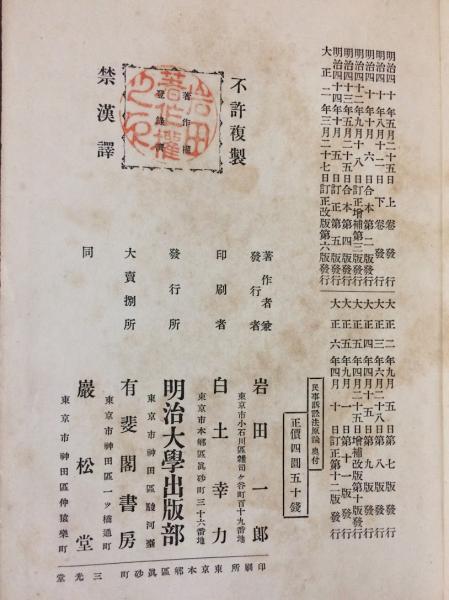 明治四十年五月二十五日上卷發行
明治四十年八月十二日下卷發行
明治四十年十月六日合本第二版發行
明治四十二年九月十八日訂正增補第三版發行
明治四十三年五月二十五日合本第四版發行
明治四十四年十月五日訂正第五版發行
大正二年三月二十七日訂正改版第六版發行
大正二年九月五日第七版發行
大正三年六月二十八日第八版發行
大正四年四月十五日第九版發行
大正五年四月二十五日增補改版第十版發行
大正五年九月一日第十一版發行
大正六年四月十日訂正第十二版發行
民事訴訟法原論奧付
正價四圓五十錢
不許複製
著作權
登錄濟
禁漢譯
著作者兼
發行者
岩田一郎
東京市小石川區雜司ヶ谷町百十九番地
印刷者
白土幸力
東京市本鄕區眞砂町三十六番地
發行所
明治大學出版部
東京市神田區駿河臺
大賣捌所
有斐閣書房
東京市神田區一ッ橋通町
同
巖松堂
東京市神田區仲猿樂町
印刷所東京本鄕區眞砂町三光堂